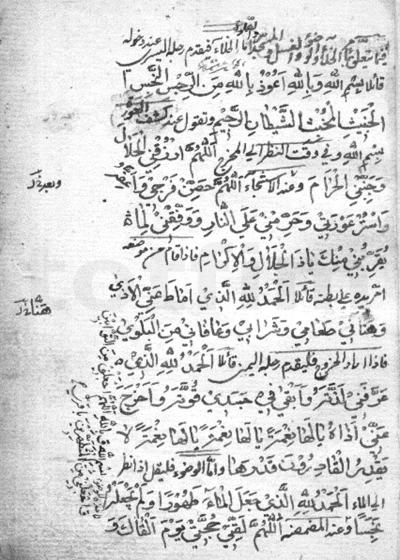 فيما يتعلق بالخلاء والوضوء والغسل
الخلاء فيقدم رجله اليسرى عند دخوله
قائلا بسم الله وبالله أعوذ بالله من الرجس النجس
الخبيث المخبث الشيطان الرجيم ويقول عند كشف العورة
بسم الله وفي وقت النظر الى المخرج اللهم ارزقني الحلال
وجنبني الحرام وعند الاستنجاء اللهم حصن فرجي وأعفه
واستر عورتي وحرمني على النار ووفقني لما
يقربني منك ياذا الجلال والاكرام فاذا قام من موضعه
امر يده على بطنه قائلا الحمد لله الذي اماط عني الاذى
وهنأني طعامي وشرابي وعافاني من البلوى
فاذا اراد الخروج فليقدم رجله اليمنى قائلا الحمد لله الذي
عرفني لذته وأبقى في جسدي قوته وأخرج
عني أذاه يالها نعمة يالها نعمة يالها نعمة لا
يقدر القادرون قدرها واما الوضوء فليقل اذا نظر
الى الماء الحمد لله الذي جعل الماء طهورا ولم يجعله
نجسا وعند المضمضة اللهم لقني حجتي يوم ألقاك و